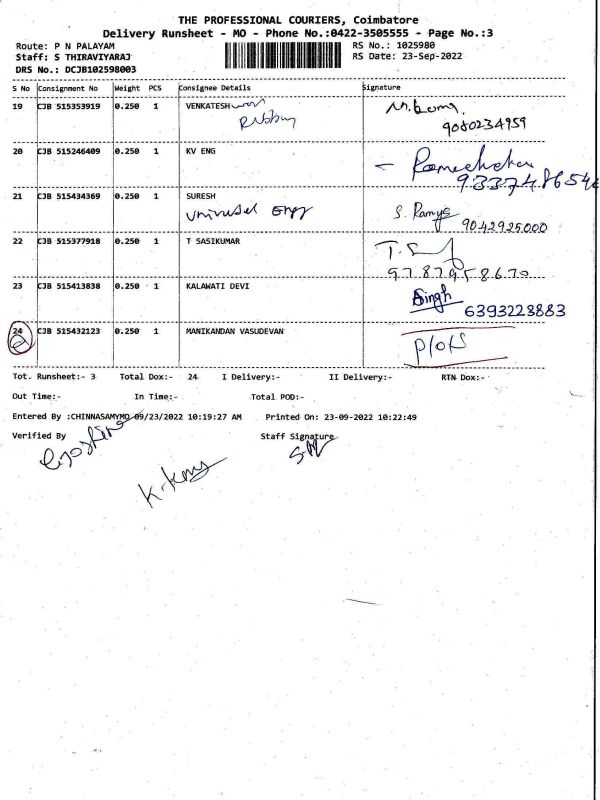 THE PROFESSIONAL COURIERS, Coimbatore
Delivery Runsheet - MO - Phone No.:0422-3505555 - Page No.:3
Route: P N PALAYAM RS No.: 1025980
Staff: S THIRAVIYARAJ RS Date: 23-Sep-2022
DRS No.: DCJB102598003
S No Consignment No Weight PCS Consignee Details Signature
19 CJB 515353919 0.250 1 VENKATESH
9080234959
20 CJB 515246409 0.250 1 KV ENG
21 CJB 515434369 0.250 1 SURESH
S. Ramya
9042925000
22 CJB 515377918 0.250 1 T SASIKUMAR
9787958670
23 CJB 515413838 0.250 1 KALAWATI DEVI
Singh 6393228883
24 CJB 515432123 0.250 1 MANIKANDAN VASUDEVAN
Tot. Runsheet:- 3 Total Dox:- 24 I Delivery:- II Delivery:- RTN Dox:-
Out Time:- In Time:- Total POD:-
Entered By :CHINNASAMYMO 09/23/2022 10:19:27 AM Printed On: 23-09-2022 10:22:49
Verified By Staff Signature